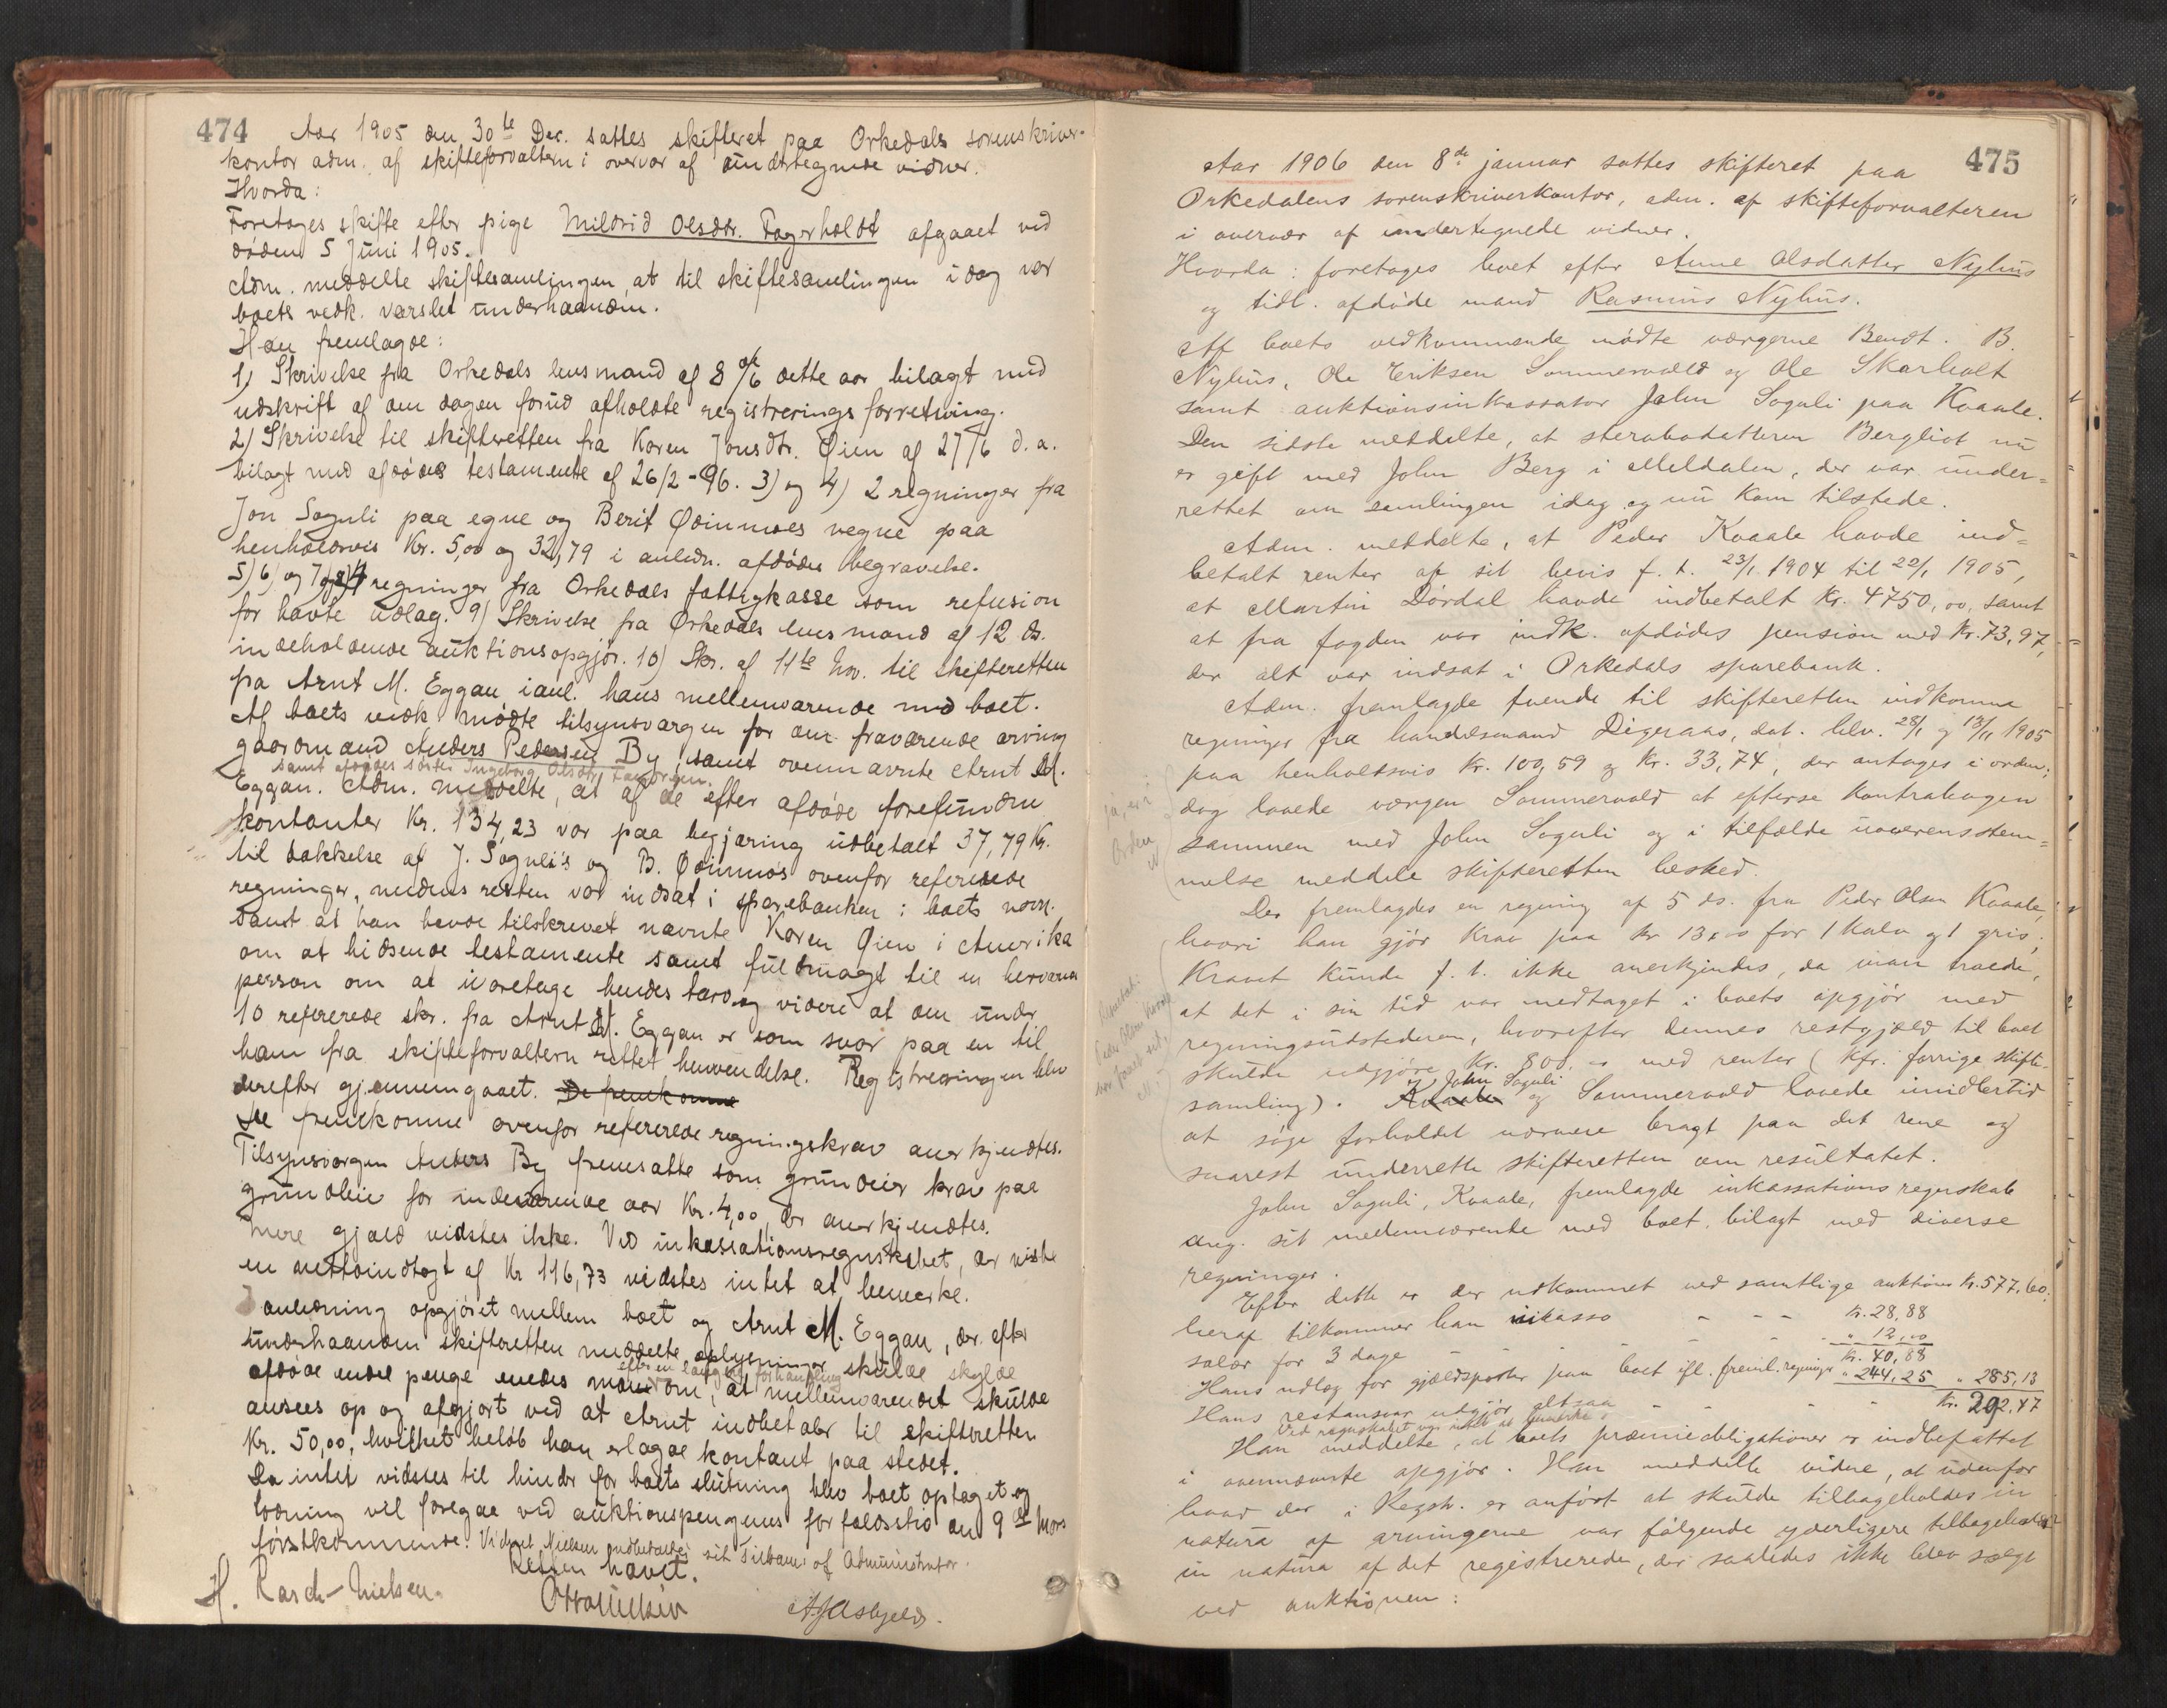 474
Aar 1905 den 30te Dec. sattes skifteret paa Orkedals sorenskriver-
kontor adm. af skifteforvalteren i overvær af undertegnede vidner.
Hvorda:
Foretoges skifte efter pige Mildrid Olsdtr. Fagerholdt afgaaet ved
døden 5 Juni 1905.
Adm. meddelte skiftesamlingen, at til skiftesamlingen idag var
boets vedk. varslet underhaanden.
Han fremlagde:
1) Skrivelse fra Orkedals lensmand af 8de/6 dette aar bilagt med
udskrift af den dagen forud afholdte registreringsforretning.
2) Skrivelse til skifteretten fra Karen Jonsdtr. Øien af 27/6 d.a.
bilagt med afdødes testamente af 26/2-96. 3) og 4) 2 regninger fra
Jon Soguli paa egne og Berit Ødinmoes vegne paa
henholdsvis Kr. 5,00 og 32,79 i anledn. afdødes begravelse.
5) 6) og 7) og 8) 4 regninger fra Orkedals fattigkasse som refusion
for havte udlæg. 9) Skrivelse fra Orkedals lensmand af 12 ds.
indeholdende auktionsopgjør. 10) Skr. af 11te Nov. til skifteretten
fra Arnt M. Eggan i anl. hans mellemværende med boet.
Af boets vedk. mødte tilsynsværgen for den fraværende arving
gaardmand Anders Pedersen By, samt ovennævnte Arnt M.
samt afdødes søster Ingeborg Olsdtr.
Eggan. Adm. meddelte, at af de efter afdøde forefundne
kontanter Kr. 134,23 var paa begjæring udbetalt 37,79 Kr.
til dækkelse af J. Soguli's og B. Ødinmo's ovenfor refererede
regninger, medens resten var indsat i sparebanken i boets navn.
samt at han havde tilskrevet nævnte Karen Øien i Amerika
om at hidsende testamente samt fuldmagt til en herværende
person om at ivaretage hendes tarv og videre at den under
10 refererede skr. fra Arnt M. Eggan er som svar paa en til
ham fra skifteforvalteren rettet henvendelse. Registreringen blev
derefter gjennemgaaet. De fremkomne
De fremkomne ovenfor refererede regningskrav anerkjendtes.
Tilsynsværgen Anders By fremsatte som grundeier krav paa
grundleie for indeværende aar Kr. 4,00, der anerkjendtes.
Mere gjæld vidstes ikke. Ved inkassationsregnskabet, der viste
en nettoindtægt af Kr 116,73 vidstes intet at bemerke.
I anledning opgjøret mellem boet og Arnt M. Eggan, der efter
underhaanden skifteretten meddelte oplysninger skulde skylde
efter en længere forhandling
afdøde endel penge enedes man om, at mellemværendet skulde
ansees op og afgjort ved at Arnt indbetaler til skifteretten
Kr. 50,00, hvilket beløb han erlagde kontant paa stedet.
Da intet vidstes til hinder for boets slutning blev boet optaget og
lodning vil foregaa ved auktionspengenes forfaldstid den 9de Mars
førstkommende. Vidnet Nielsen sit Tilkom. af Administrator.
Retten hævet.
H. Rasch-Nielsen.
475
Aar 1906 den 8de januar sattes skifteret paa
Orkedalens sorenskriverkontor, adm. af skifteforvalteren
i overvær af undertegnede vidner.
Hvorda: foretoges boet efter Anne Olsdatter Nyhus
og tidl. afdøde mand Rasmus Nyhus.
Af boets vedkommende mødte værgerne Bendt. B.
Nyhus, Ole Eriksen Sommervold og Ole Skarholt
samt auktionsinkassator John Soguli paa Kvaale.
Den sidste meddelte, at stervbodatteren Bergliot nu
er gift med John Berg i Meldalen, der var under=
rettet om samlingen idag og nu kom tilstede.
Adm. meddelte, at Peder Kvaale havde ind=
betalt renter af sit bevis f. t. 23/1 1904 til 22/1 1905,
at Martin Dørdal havde indbetalt Kr. 4750,00, samt
at fra fogden var indk. afdødes pension med Kr. 73,97,
der alt var indsat i Orkedals sparebank.
Adm. fremlagde tvende til skifteretten indkomne
regninger fra handelsmand Digeraas, dat. hlv. 28/1 og 13/11 1905
paa henholdsvis Kr. 100,59 og Kr. 33,74, der antages i orden;
dog lovede værgen Sommervold at efterse kontrabogen
sammen med John Soguli og i tilfælde uoverensstem=
melse meddele skifteretten besked.
Der fremlagdes en regning af 5 ds. fra Peder Olsen Kvaale,
hvori han gjør krav paa Kr 13,00 for 1 kalv og 1 gris;
Kravet kunde f. t. ikke anerkjendes, da man troede,
at det i sin tid var medtaget i boets opgjør med
regningsudstederen, hvorefter dennes restgjæld til boet
skulde udgjøre Kr. 800,00 med renter (kfr. forrige skifte-
samling). Kvaale John Soguli og Sommervold lovede imidlertid
at søge forholdet nærmere bragt paa det rene og
snarest underrette skifteretten om resultatet.
John Soguli, Kvaale, fremlagde inkassations regnskab
ang. sit mellemværende med boet, bilagt med diverse
regninger.
Efter dette er der udkommet ved samtlige auktioner Kr. 577,60;
heraf tilkommer han inkasso - - - Kr. 28,88
salær for 3 dage - - - - " 12,00
Kr. 40,88
Hans udlæg for gjældsposter paa boet ifl. freml. regninger " 244,25 " 285,13
Hans restansvar udgjør altsaa - - - Kr. 292,47
Ved regnskabet var intet at bemerke.
Han meddelte, at boets præmieobligationer er indbefattet
i ovennævnte opgjør. Han meddelte videre, at udenfor
hvad der i Regsk. er anført at skulde tilbageholdes in
natura af arvingerne var følgende yderligere tilbageholdt
in natura af det registrerede, der saaledes ikke blev solgt
ved auktionen: